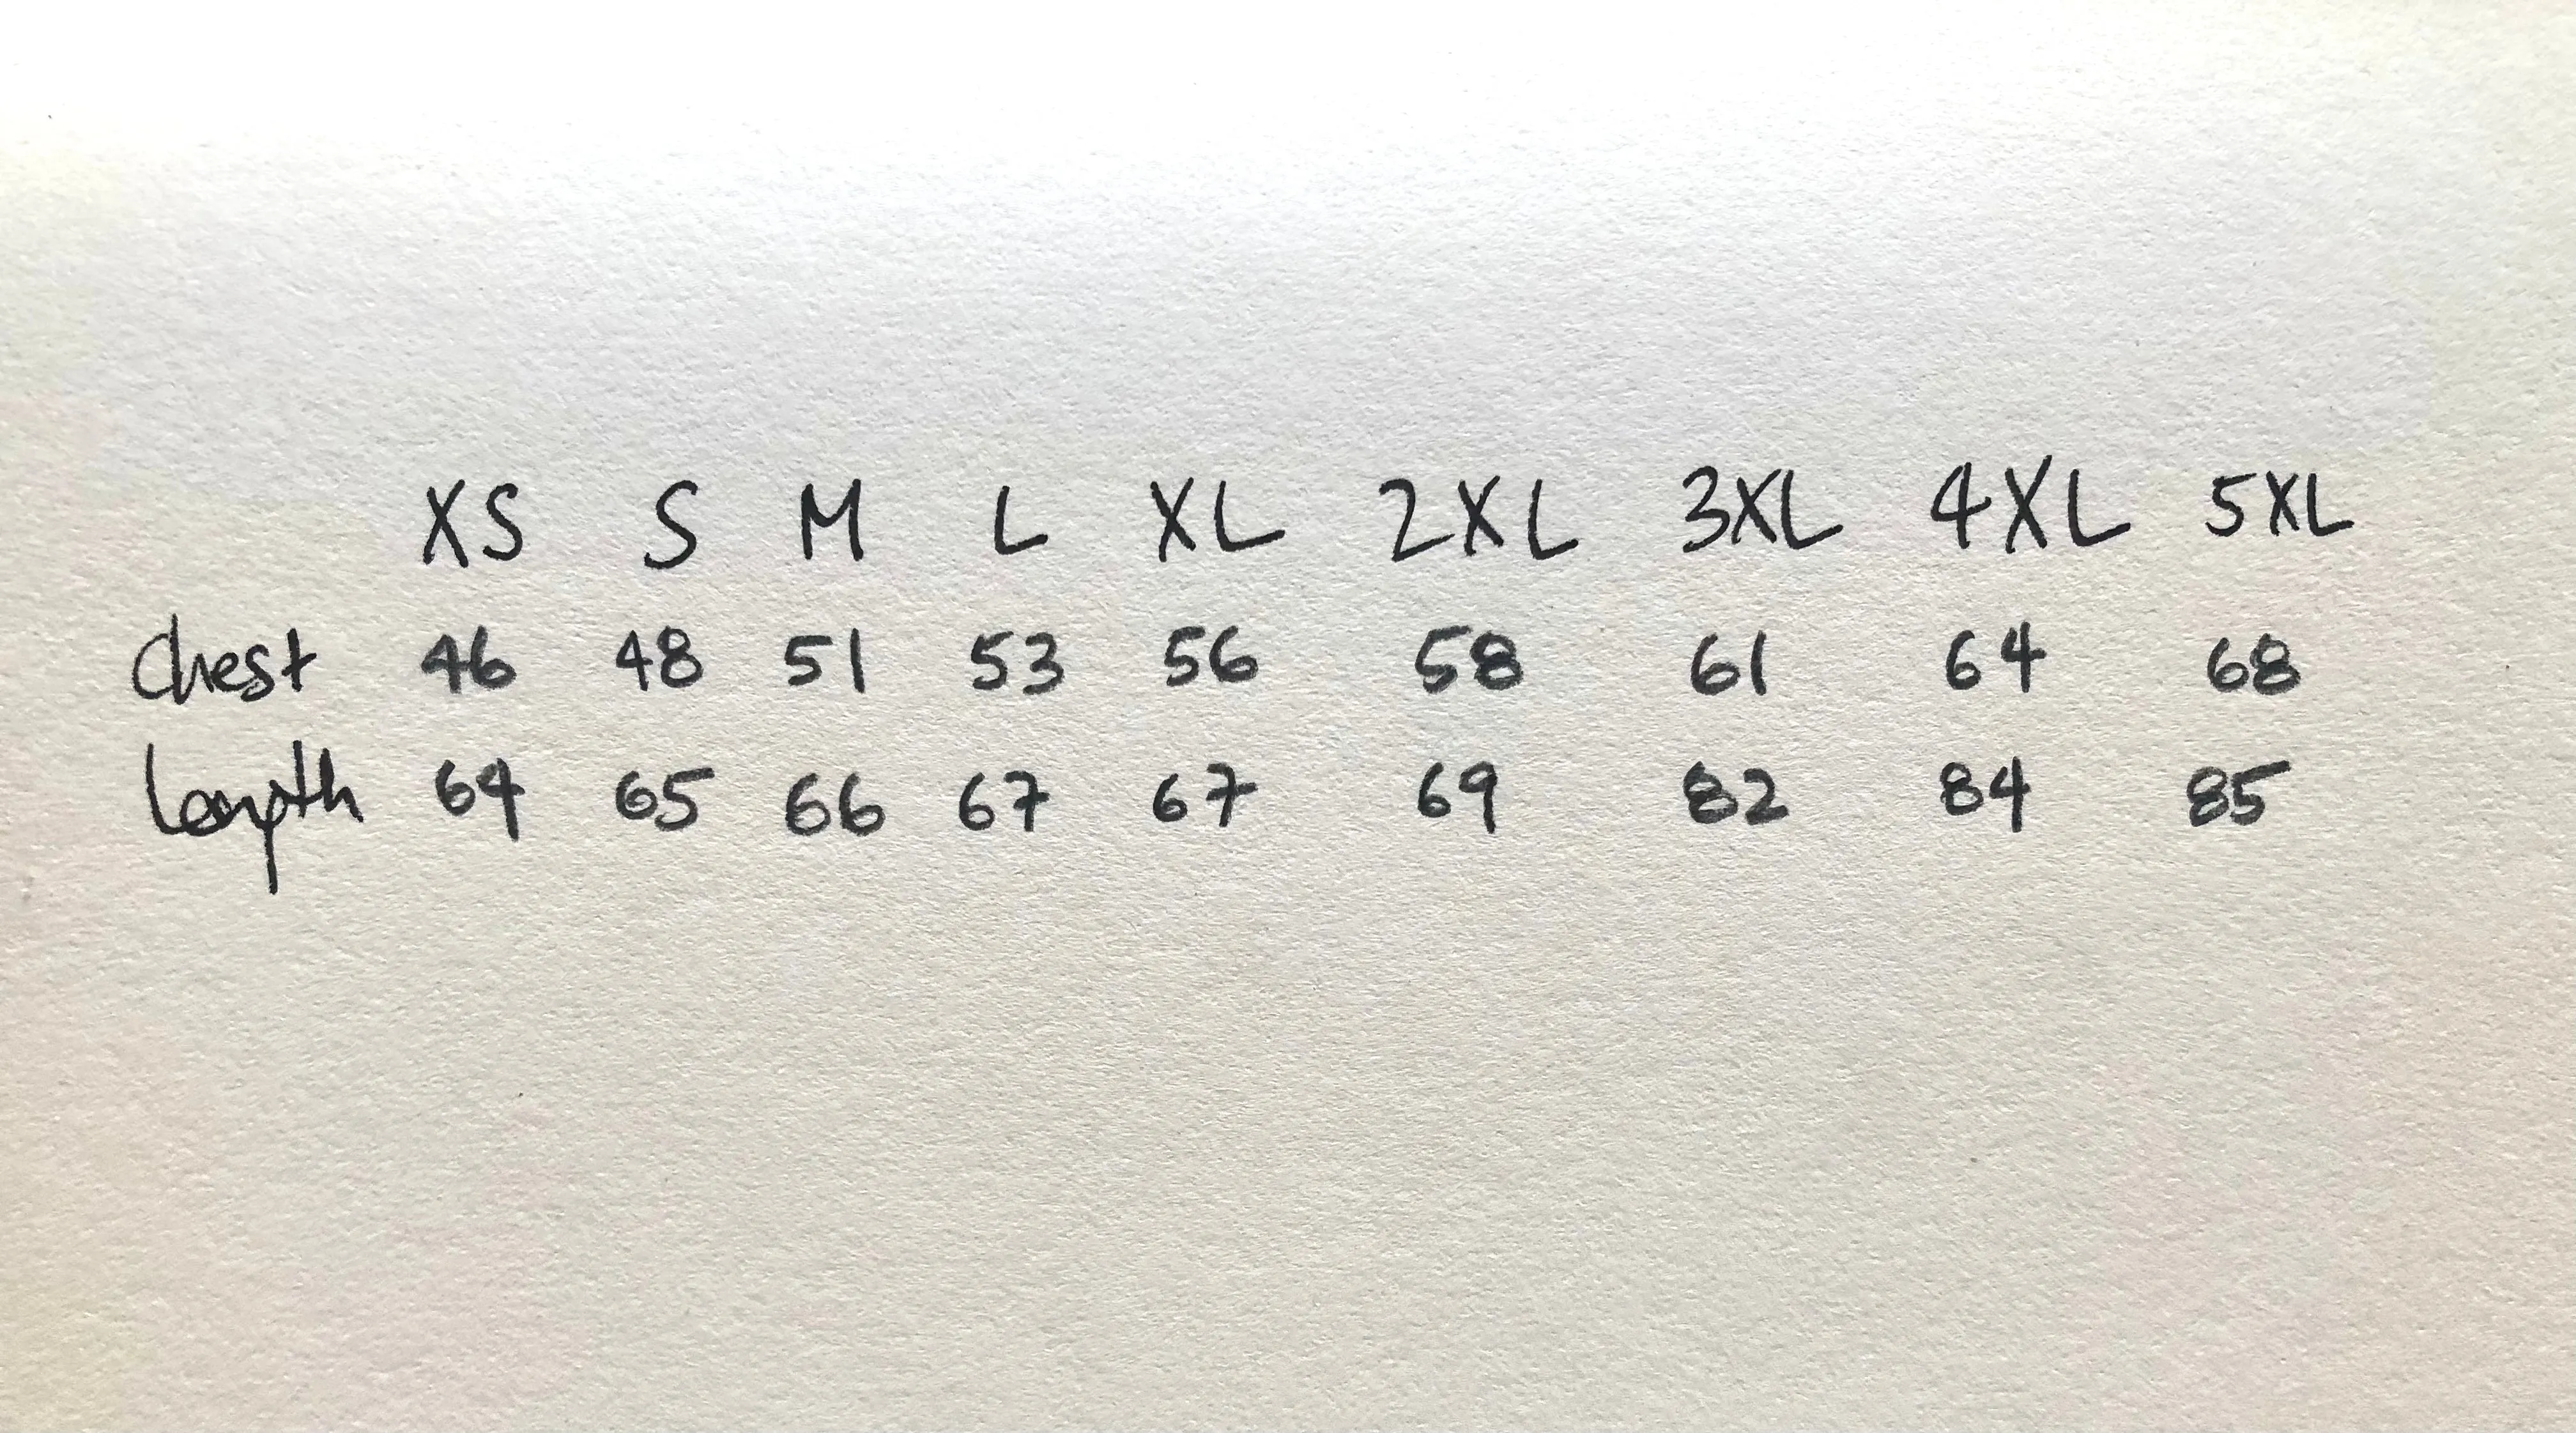 XS S M L XL 2XL 3XL 4XL 5XL
Chest 46 48 51 53 56 58 61 64 68
Length 64 65 66 67 67 69 82 84 85